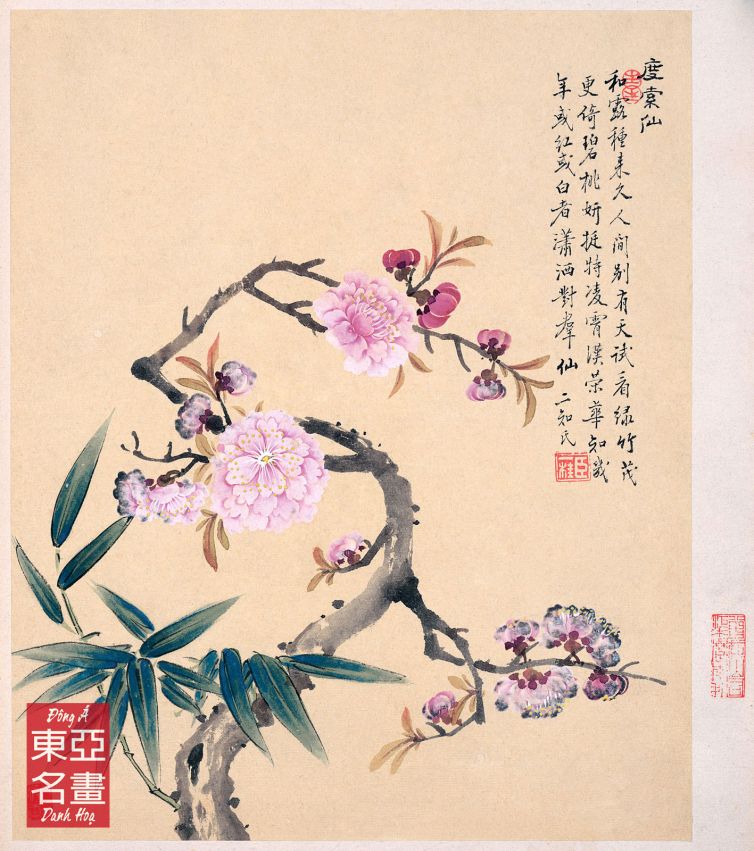 度索仙
和露種来久人間别有天試看緑竹茂
更倚碧桃妍挺特凌霄漢荣華知幾
年或紅或白者瀟洒對羣仙 二知氏
臣
桂
Đông Á
東亞
名畫
Danh Hoạ